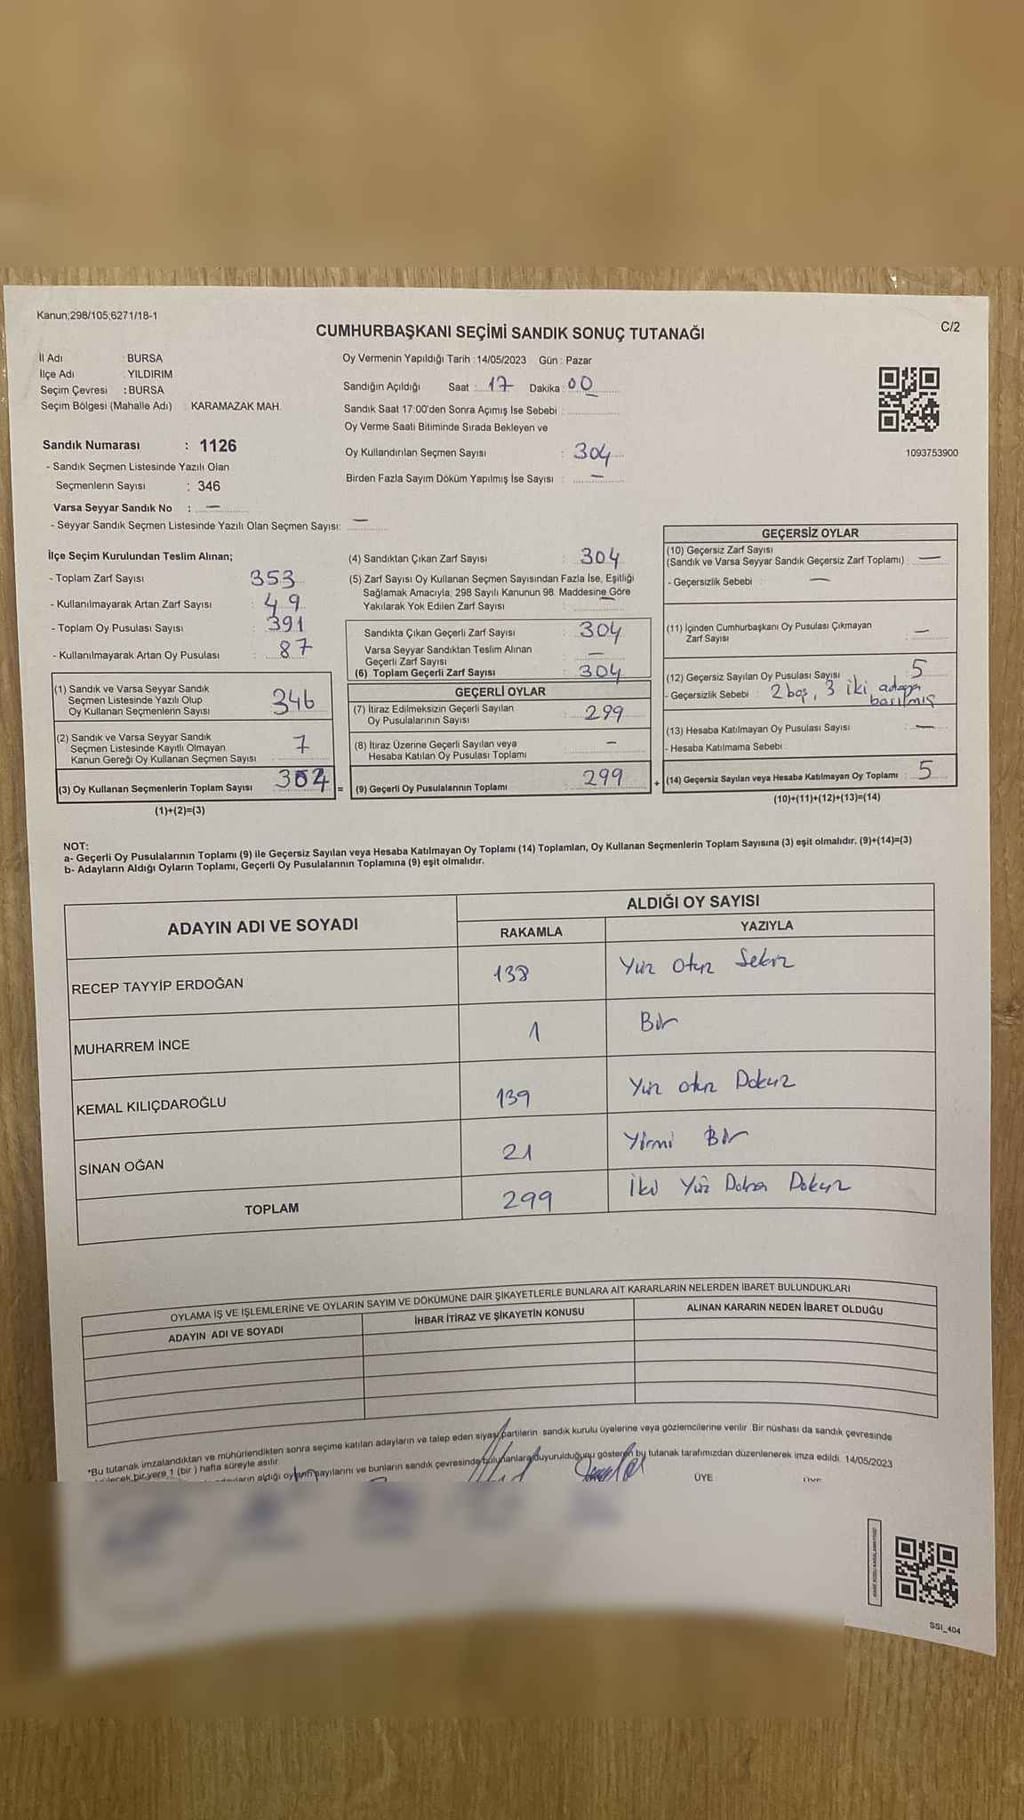 Kanun;298/105;6271/18-1
CUMHURBAŞKANI SEÇİMİ SANDIK SONUÇ TUTANAĞI
C/2
İl Adı : BURSA
İlçe Adı : YILDIRIM
Seçim Çevresi : BURSA
Seçim Bölgesi (Mahalle Adı) : KARAMAZAK MAH.
Oy Vermenin Yapıldığı Tarih : 14/05/2023 Gün : Pazar
Sandığın Açıldığı Saat : 17 Dakika : 00
Sandık Saat 17:00'den Sonra Açılmış İse Sebebi :
Oy Verme Saati Bitiminde Sırada Bekleyen ve
Oy Kullandırılan Seçmen Sayısı : 304
Birden Fazla Sayım Döküm Yapılmış İse Sayısı : —
1093753900
Sandık Numarası : 1126
- Sandık Seçmen Listesinde Yazılı Olan
Seçmenlerin Sayısı : 346
Varsa Seyyar Sandık No : —
- Seyyar Sandık Seçmen Listesinde Yazılı Olan Seçmen Sayısı: —
İlçe Seçim Kurulundan Teslim Alınan;
- Toplam Zarf Sayısı : 353
- Kullanılmayarak Artan Zarf Sayısı : 49
- Toplam Oy Pusulası Sayısı : 391
- Kullanılmayarak Artan Oy Pusulası : 87
(1) Sandık ve Varsa Seyyar Sandık
Seçmen Listesinde Yazılı Olup
Oy Kullanan Seçmenlerin Sayısı 346
(2) Sandık ve Varsa Seyyar Sandık
Seçmen Listesinde Kayıtlı Olmayan
Kanun Gereği Oy Kullanan Seçmen Sayısı 7
(3) Oy Kullanan Seçmenlerin Toplam Sayısı 304
(1)+(2)=(3)
(4) Sandıktan Çıkan Zarf Sayısı : 304
(5) Zarf Sayısı Oy Kullanan Seçmen Sayısından Fazla İse, Eşitliği
Sağlamak Amacıyla, 298 Sayılı Kanunun 98. Maddesine Göre
Yakılarak Yok Edilen Zarf Sayısı : —
Sandıkta Çıkan Geçerli Zarf Sayısı : 304
Varsa Seyyar Sandıktan Teslim Alınan
Geçerli Zarf Sayısı : —
(6) Toplam Geçerli Zarf Sayısı : 304
GEÇERLİ OYLAR
(7) İtiraz Edilmeksizin Geçerli Sayılan
Oy Pusulalarının Sayısı : 299
(8) İtiraz Üzerine Geçerli Sayılan veya
Hesaba Katılan Oy Pusulası Toplamı —
= (9) Geçerli Oy Pusulalarının Toplamı 299
GEÇERSİZ OYLAR
(10) Geçersiz Zarf Sayısı
(Sandık ve Varsa Seyyar Sandık Geçersiz Zarf Toplamı) : —
- Geçersizlik Sebebi : —
(11) İçinden Cumhurbaşkanı Oy Pusulası Çıkmayan
Zarf Sayısı : —
(12) Geçersiz Sayılan Oy Pusulası Sayısı : 5
- Geçersizlik Sebebi : 2 boş, 3 iki adaya
basılmış
(13) Hesaba Katılmayan Oy Pusulası Sayısı : —
- Hesaba Katılmama Sebebi
+ (14) Geçersiz Sayılan veya Hesaba Katılmayan Oy Toplamı 5
(10)+(11)+(12)+(13)=(14)
NOT:
a- Geçerli Oy Pusulalarının Toplamı (9) ile Geçersiz Sayılan veya Hesaba Katılmayan Oy Toplamı (14) Toplamları, Oy Kullanan Seçmenlerin Toplam Sayısına (3) eşit olmalıdır. (9)+(14)=(3)
b- Adayların Aldığı Oyların Toplamı, Geçerli Oy Pusulalarının Toplamına (9) eşit olmalıdır.
ADAYIN ADI VE SOYADI
ALDIĞI OY SAYISI
RAKAMLA YAZIYLA
RECEP TAYYİP ERDOĞAN 138 Yüz Otuz Sekiz
MUHARREM İNCE 1 Bir
KEMAL KILIÇDAROĞLU 139 Yüz otuz Dokuz
SİNAN OĞAN 21 Yirmi Bir
TOPLAM 299 İki Yüz Doksan Dokuz
OYLAMA İŞ VE İŞLEMLERİNE VE OYLARIN SAYIM VE DÖKÜMÜNE DAİR ŞİKAYETLERLE BUNLARA AİT KARARLARIN NELERDEN İBARET BULUNDUKLARI
ADAYIN ADI VE SOYADI İHBAR İTİRAZ VE ŞİKAYETİN KONUSU ALINAN KARARIN NEDEN İBARET OLDUĞU
*Bu tutanak imzalandıktan ve mühürlendikten sonra seçime katılan adayların ve talep eden siyasi partilerin sandık kurulu üyelerine veya gözlemcilerine verilir. Bir nüshası da sandık çevresinde
bir yere 1 (bir) hafta süreyle asılır.
aldığı oyların sayılarını ve bunların sandık çevresinde duyurulduğunu gösteren bu tutanak tarafımızdan düzenlenerek imza edildi. 14/05/2023
ÜYE
SSI_404